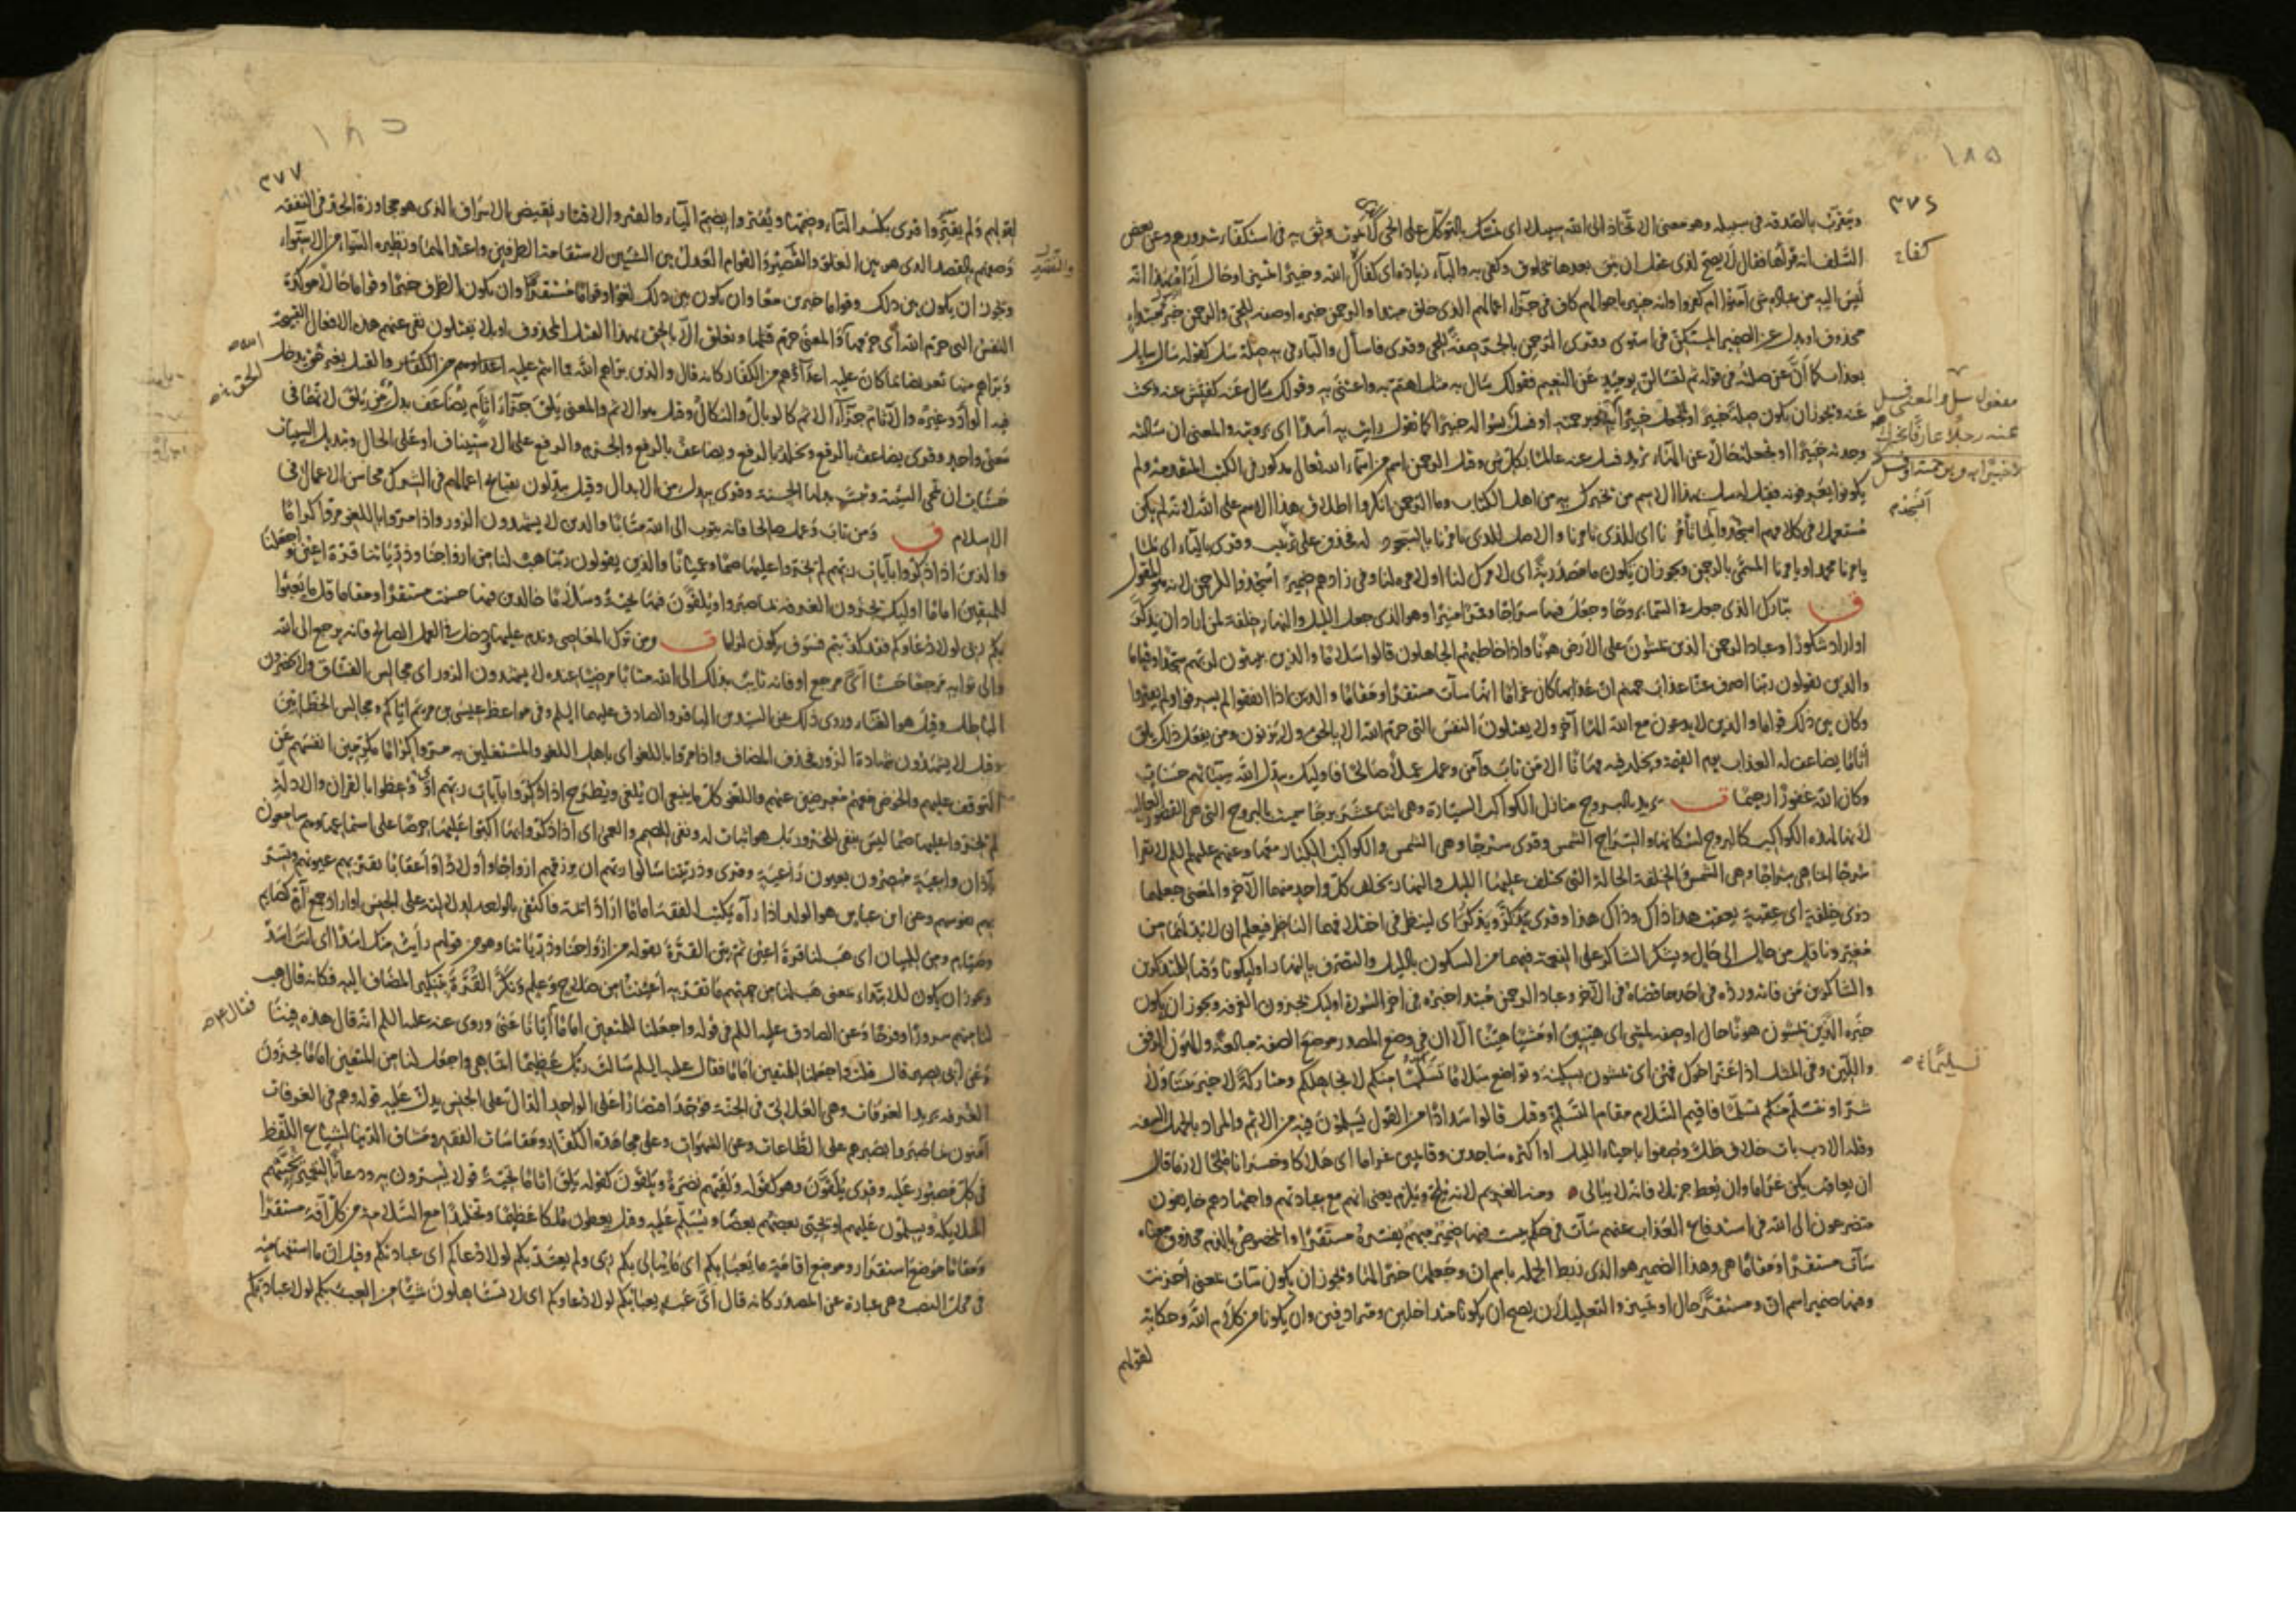 ١٨٥
٣٧٦
ويتقرب بالصدقة في سبيله وهو معنى الاتخاذ الى الله سبيلا اى تمسك بالتوكل على الحى الذى لا يموت وثق به فى استكفآء شرورهم وعن بعض
كفاح
السلف انه قرأها فقال لا يصح لذى عقل ان يثق بعدها بمخلوق وكفى به والبآء زيادة اى كفاك الله وخبيرا تمييز او حال
ليس اليه من عباده شى آمنوا ام كفروا وانه خبير باحوالهم كاف فى جزآء اعمالهم الذى خلق مبتدا والرحمن خبره او صفة للحى والرحمن خبر مبتدإ
محذوف او بدل عن الضمير المستكن فى استوى وقرى الرحمن بالجر صفة للحى وقرى فاسأل والبآء فى به صلة سل كقوله سال سايل
بعذاب كما ان عن صلته فى قوله ثم لتسالن يوميذ عن النعيم فقولك سال به مثل اهتم به واعتنى به وقولك سال عنه كفتش عنه وبحث
مفعول سل والمعنى فسل
عنه رجلا عارفا يخبرك
عنه ويجوز ان يكون صلة خبيرا او تجعل خبيرا برحمته او فسل بسؤاله خبيرا كما تقول رايت به أسدا اى برويته والمعنى ان سالته
وجدته خبيرا او تجعله حالا عن الهآء تريد فسل عنه عالما بكل شى وقيل الرحمن اسم من اسمآء الله تعالى مذكور فى الكتب المتقدمة ولم
يكونوا يعرفونه فقيل له سل بهذا الاسم من يخبرك به من اهل الكتاب وما الرحمن انكروا اطلاق هذا الاسم على الله لانه لم يكن
مستعملا فى كلامهم انسجد لما تأمرنا اى للذى تامرنا والاصل للذى تامرنا بالسجود له فحذف على ترتيب وقرى باليآء اى لما
يامرنا محمد او يامرنا المسمى بالرحمن ويجوز ان يكون ما مصدرية اى لامرك لنا او لامره لنا وفى زادهم ضمير اسجدوا للرحمن لانه هو المقول
ق تبارك الذى جعل فى السما بروجا وجعل فيها سراجا وقمرا منيرا وهو الذى جعل الليل والنهار خلفة لمن اراد ان يذكر
او اراد شكورا وعباد الرحمن الذين يمشون على الارض هونا واذا خاطبهم الجاهلون قالوا سلاما والذين يبيتون لربهم سجدا وقياما
والذين يقولون ربنا اصرف عنا عذاب جهنم ان عذابها كان غراما انها سآت مستقرا ومقاما والذين اذا انفقوا لم يسرفوا ولم يقتروا
وكان بين ذلك قواما والذين لا يدعون مع الله الها آخر ولا يقتلون النفس التى حرم الله الا بالحق ولا يزنون ومن يفعل ذلك يلق
اثاما يضاعف له العذاب يوم القيمة ويخلد فيه مهانا الا من تاب وآمن وعمل عملا صالحا فاوليك يبدل الله سيئاتهم حسنات
وكان الله غفورا رحيما ق يريد بالبروج منازل الكواكب السيارة وهى اثنا عشر برجا سميت بالبروج التى هى القصور العالية
لانها لهذه الكواكب كالبروج لسكانها والسراج الشمس وقرى سرجا وهى الشمس والكواكب الكبار معها وعنهم عليهم السلم لا تقرا
سرجا انما هى سراجا وهى الشمس والخلفة الحالة التى يختلف عليها الليل والنهار يخلف كل واحد منهما الآخر والمعنى جعلهما
ذوى خلفة اى عقبة يعقب هذا ذاك وذاك هذا وقرى يذكر ويذكر اى لينظر فى اختلافهما الناظر فيعلم ان لا بد لهما من
مغير وناقل من حال الى حال ويشكر الشاكر على النعمة فيهما من السكون بالليل والتصرف بالنهار او ليكونا وقتا للمتذكرين
والشاكرين من فاته ورده فى احدهما قضاه فى الآخر وعباد الرحمن مبتدا خبره فى اخر السورة اوليك يجزون الغرفة ويجوز ان يكون
خبره الذين يمشون هونا حال او صفة لمشى اى هينين او مشيا هينا الا ان فى وضع المصدر موضع الصفة مبالغة والهون الرفق
واللين وفى المثل اذا عز اخوك فهن اى يمشون بسكينة وتواضع سلاما تسلما منكم لا نجاهلكم ومتاركة لا خير بيننا ولا
تسليما
شر او نتسلم منكم تسلما فاقيم السلام مقام التسلم وقيل قالوا سدادا من القول يسلمون فيه من الاثم والمراد بالجهل السفه
وقلة الادب بات خلاف ظل وصفوا باحياء الليل او اكثره ساجدين وقايمين غراما اى هلاكا وخسرانا ملحا لازما قال
ان يعاقب يكن غراما وان يعط جزيلا فانه لا يبالى ومنه الغريم لانه يلح ويلازم يعنى انهم مع عبادتهم واجتهادهم خايفون
متضرعون الى الله فى استدفاع العذاب عنهم سآت فى حكم بيست فيها ضمير مبهم يفسره مستقرا والمخصوص بالذم محذوف معناه
سآت مستقرا ومقاما هى وهذا الضمير هو الذى ربط الجملة باسم ان وجعلها خبرا لها ويجوز ان يكون سآت بمعنى احزنت
وفيها ضمير اسم ان ومستقرا حال او تمييز والتعليلان يصح ان يكونا متداخلين ومترادفين وان يكونا من كلام الله وحكاية
لقولهم
١٨٥
٣٧٧
لقولهم ولم يقتروا قرى بكسر التآء وضمها ويقتروا بضم اليآء والقتر والاقتار نقيض الاسراف الذى هو مجاوزة الحد فى النفقة
وصفهم بالقصد الذى هو بين الغلو والتقصير والقوام العدل بين الشيين لاستقامة الطرفين واعتدالهما ونظيره السواء من الاستواء
ويجوز ان يكون بين ذلك وقواما خبرين معا وان يكون بين ذلك لغوا وقواما مستقرا وان يكون الظرف خبرا وقواما حالا موكدة
النفس التى حرم الله أى حرمها والمعنى حرم قتلها وتعلق الا بالحق بهذا القتل المحذوف او بلا يقتلون نفى عنهم هذه الافعال القبيحة
وبرأهم منها تعريضا بما كان عليه اعدآؤهم من الكفار كانه قال والذين برأهم الله مما انتم عليه والقتل بغير حق يدخل
فيه الوأد وغيره والآثام جزآء الاثم كالوبال والنكال وقيل هو الاثم والمعنى يلق جزآء اثام يضاعف بدل من يلق لانهما فى
معنى واحد وقرى يضاعف بالرفع ويخلد بالرفع ويضاعف بالرفع والجزم والرفع على الاستيناف او على الحال وتبديل السيئات
حسنات ان تمحى السيئة وتثبت بدلها الحسنة وقرى يبدل من الابدال وقيل يبدلون بقبايح اعمالهم فى الشرك محاسن الاعمال فى
الاسلام ق ومن تاب وعمل صالحا فانه يتوب الى الله متابا والذين لا يشهدون الزور واذا مروا باللغو مروا كراما
والذين اذا ذكروا بآيات ربهم لم يخروا عليها صما وعميانا والذين يقولون ربنا هب لنا من ازواجنا وذرياتنا قرة اعين واجعلنا
للمتقين اماما اوليك يجزون الغرفة بما صبروا ويلقون فيها تحية وسلاما خالدين فيها حسنت مستقرا ومقاما قل ما يعبؤا
بكم ربى لولا دعاوكم فقد كذبتم فسوف يكون لزاما ق ومن ترك المعاصى وندم عليها ودخل فى العمل الصالح فانه يرجع الى الله
والى ثوابه مرجعا حسنا اى مرجع او فانه تائب بذلك الى الله متابا مرضيا عنده لا يشهدون الزور اى مجالس الفساق ولا يحضرون
الباطل وقيل هو الغناء وروى ذلك عن السيدين الباقر والصادق عليهما السلم وفى مواعظ عيسى بن مريم اياكم ومجالس الخطائين
وقيل لا يشهدون شهادة الزور فحذف المضاف واذا مروا باللغو اى باهل اللغو والمشتغلين به مروا كراما مكرمين انفسهم عن
التوقف عليهم والخوض معهم معرضين عنهم واللغو كل ما ينبغى ان يلغى ويطرح اذا ذكروا بآيات ربهم اى وعظوا بالقران والادلة
لم يخروا عليها صما ليس بنفى للخرور بل هو اثبات له ونفى للصمم والعمى اى اذا ذكروا بها اكبوا عليها حرصا على استماعها وهم سامعون
بآذان واعية مبصرون بعيون راعية وقرى وذريتنا سالوا ربهم ان يرزقهم ازواجا واولادا واعقابا تقر بهم عيونهم وتسر
بهم نفوسهم وعن ابن عباس هو الولد اذا رآه يكتب الفقه اماما اراد ائمة فاكتفى بالواحد لدلالته على الجنس او اراد جمع آم كصايم
وصيام ومن للبيان اى هب لنا قرة اعين ثم بين القرة بقوله من ازواجنا وذرياتنا وهو من قولهم رأيت منك اسدا اى انت اسد
ويجوز ان يكون للابتداء بمعنى هب لنا من جهتهم ما تقر به اعيننا من صلاح وعلم ونكر القرة بتنكير المضاف اليه فكانه قال هب
لنا منهم سرورا وفرحا وعن الصادق عليه السلم فى قوله واجعلنا للمتقين اماما ايانا عنى وروى عنه عليه السلم انه قال هذه فينا
وعن ابى بصير قال قلت واجعلنا للمتقين اماما فقال عليه السلم سالت ربك عظيما انما هى واجعل لنا من المتقين اماما يجزون
الغرفة يريد الغرفات وهى العلالى فى الجنة فوحد اقتصارا على الواحد الدال على الجنس يدل عليه قوله وهم فى الغرفات
آمنون بما صبروا بصبرهم على الطاعات وعن الشهوات وعلى مجاهدة الكفار ومقاسات الفقر ومشاق الدنيا لشياع اللفظ
فى كل مصبور عليه وقرى يلقون وهو كقوله ولقيهم نضرة ويلقون كقوله يلق اثاما تحية قولا يسرون به ودعا بالتعمير يحييهم
الملايكة ويسلمون عليهم او يحيى بعضهم بعضا ويسلم عليه وقيل يعطون ملكا عظيما وتخليدا مع السلامة من كل آفة مستقرا
ومقاما موضع استقرار وموضع اقامة ما يعبا بكم اى ما يبالى بكم ربى ولم يعتد بكم لولا دعاكم اى عبادتكم وقيل ان ما استفهامية
فى محل النصب وهى عبارة عن المصدر كانه قال اى عبء يعبا بكم لولا دعاوكم اى لا تستاهلون شيئا من العبء بكم لولا عبادتكم